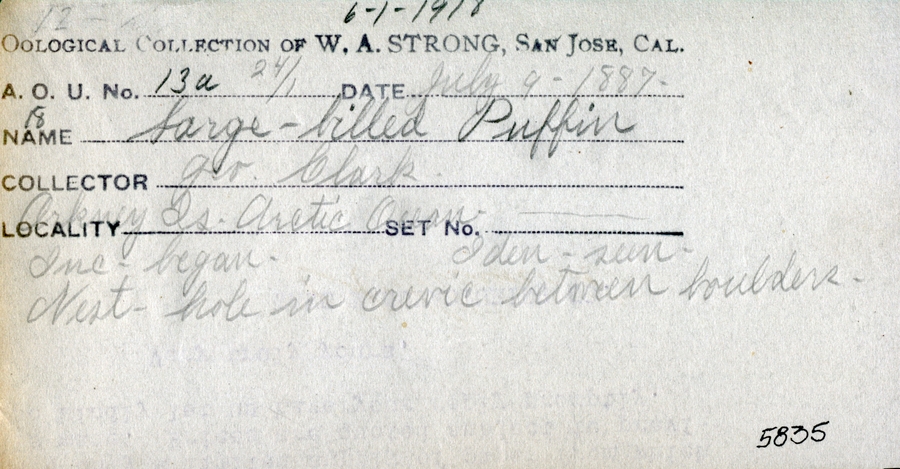 6-1-1918
OOLOGICAL COLLECTION OF W. A. STRONG, SAN JOSE, CAL.
A. O. U. No. 13a 24/1 DATE July 9 - 1887-
18
NAME Large-billed Puffin
COLLECTOR Geo. Clark.
Orkney Is. Arctic Ocean.
LOCALITY SET No.
Inc - began. Iden - seen-
Nest - hole in crevic between boulders.
5835